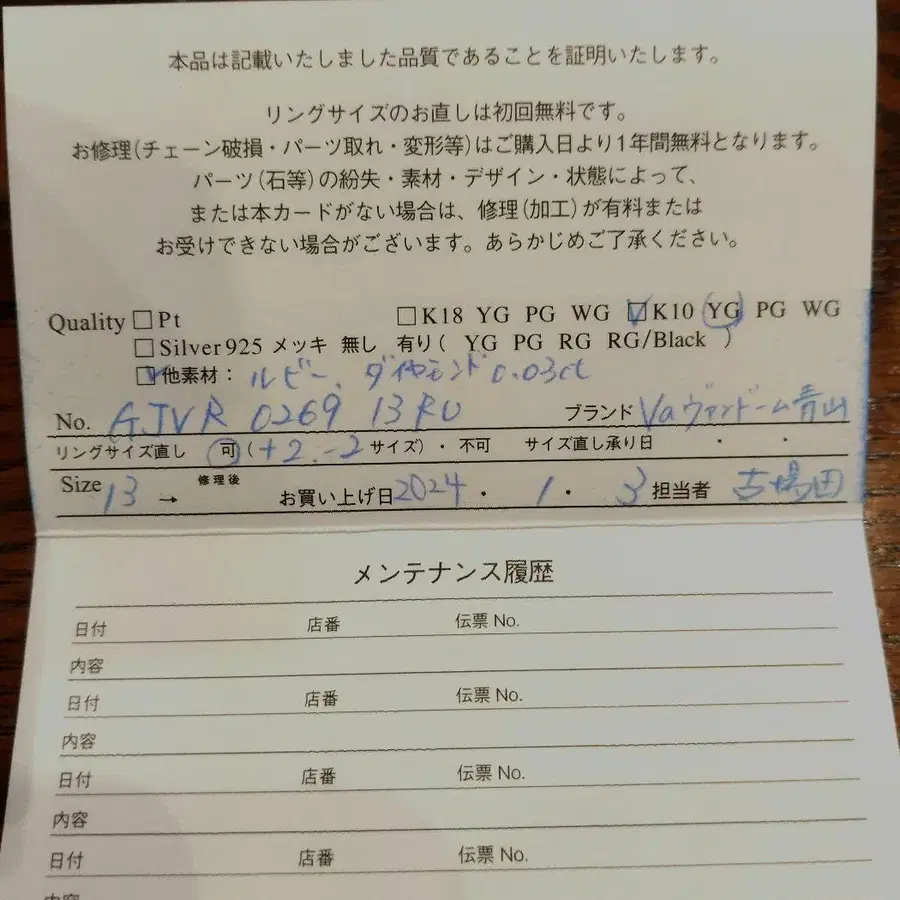 本品は記載いたしました品質であることを証明いたします。
リングサイズのお直しは初回無料です。
お修理(チェーン破損・パーツ取れ・変形等)はご購入日より1年間無料となります。
パーツ(石等)の紛失・素材・デザイン・状態によって、
または本カードがない場合は、修理(加工)が有料または
お受けできない場合がございます。あらかじめご了承ください。
Quality □Pt □K18 YG PG WG ☑K10 YG PG WG
□Silver925 メッキ 無し 有り( YG PG RG RG/Black )
☑他素材: ルビー、ダイヤモンド 0.03ct
No. AJVR 0269 13RU ブランド Vaヴァンドーム青山
リングサイズ直し 可(+2.-2サイズ)・不可 サイズ直し承り日 ・ ・
Size 13 → 修理後 お買い上げ日 2024・1・3 担当者 古場田
メンテナンス履歴
日付 店番 伝票 No.
内容
日付 店番 伝票 No.
内容
日付 店番 伝票 No.
内容
日付 店番 伝票 No.
内容